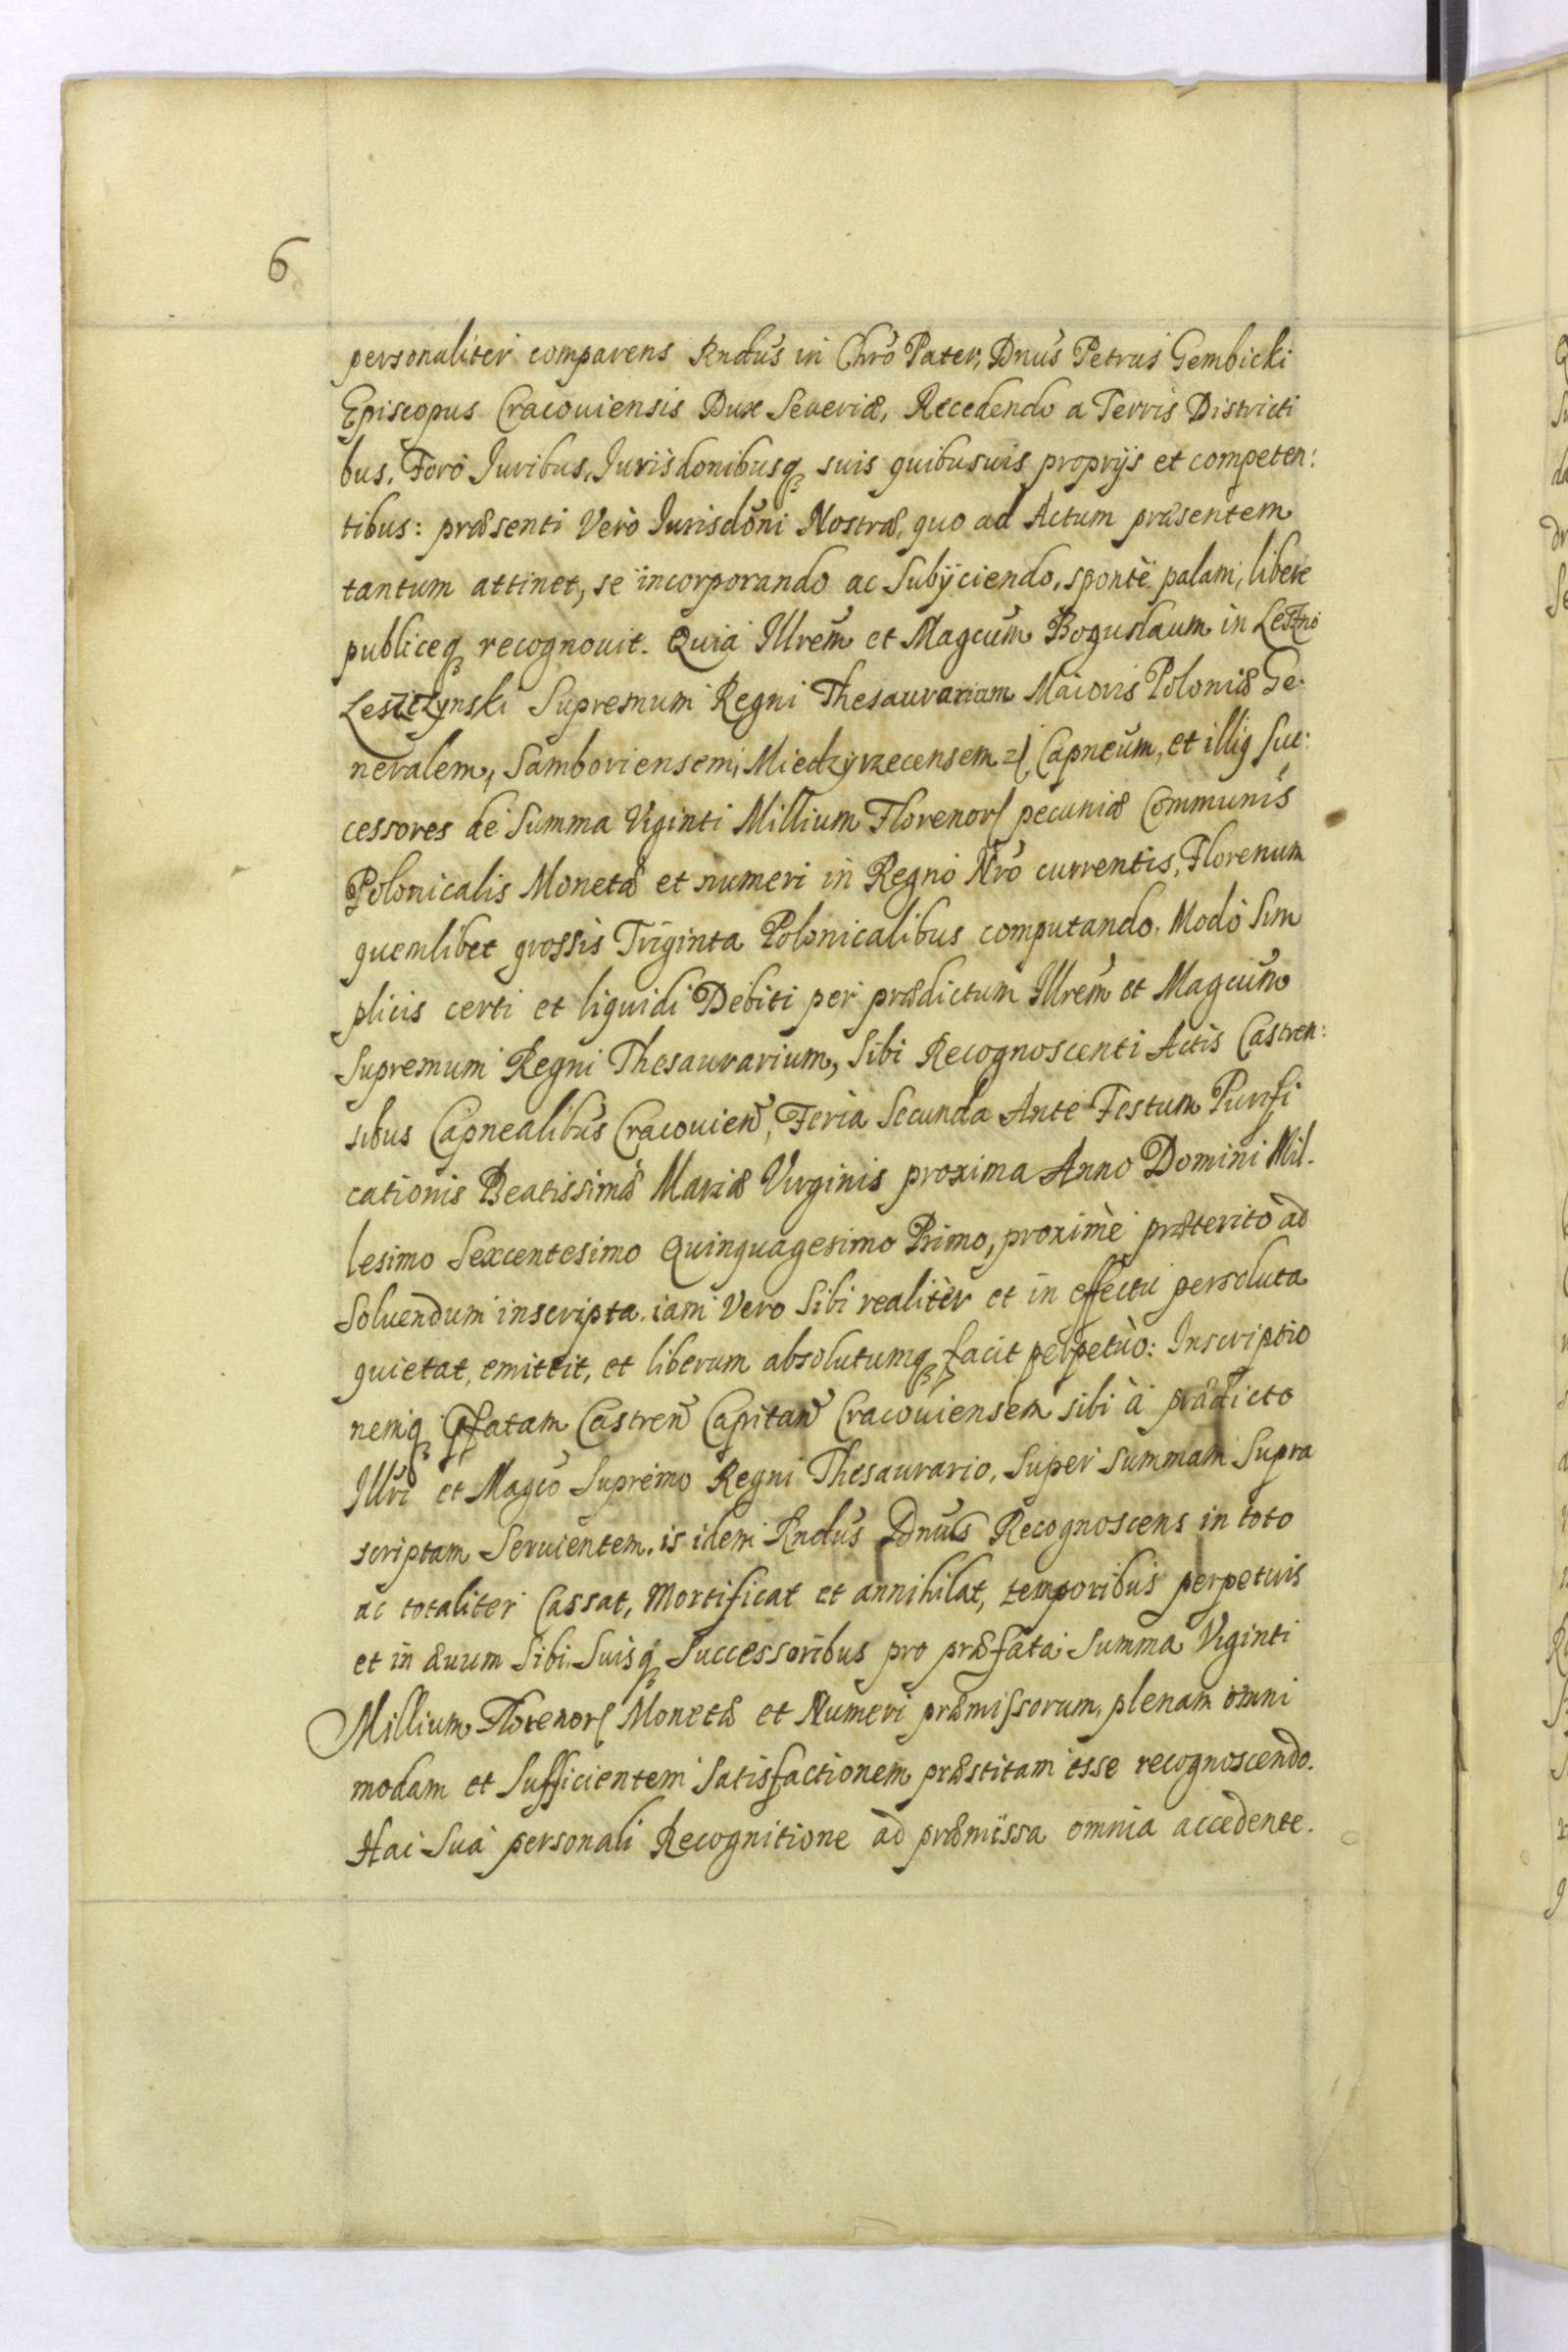 6
personaliter comparens Rndus in Chrō Pater, Dnus Petrus Gembicki
Episcopus Cracouiensis Dux Seueriæ, Recedendo a Terris Districti
bus, Foro Iuribus, Iurisdonibusq suis quibusuis proprijs et competen:
tibus: præsenti Verò Iurisdōni Nostræ, quo ad Actum præsentem
tantum attinet, se incorporando ac Subijciendo, sponte palam, libere
publiceq recognouit. Quia Illrem et Magcum Boguslaum in Leszno
Leszczynski Supremum Regni Thesaurarium Maioris Poloniæ Ge
neralem, Samboriensem, Miedzyrzecensem Capneum, et illig suc:
cessores de Summa Viginti Millium Florenor pecuniæ Communis
Polonicalis Monetæ et numeri in Regno Nrō currentis, Florenum
quemlibet grossis Triginta Polonicalibus computando, Modò Sim
plicis certi et liquidi Debiti per prædictum Illrem et Magcum
Supremum Regni Thesaurarium, Sibi Recognoscenti Actis Castren:
sibus Capnealibus Cracouien, Feria Secunda Ante Festum Purifi
cationis Beatissimæ Mariæ Virginis proxima Anno Domini Mil.
lesimo Sexcentesimo Quinquagesimo Primo, proximè præterito ad
Soluendum inscripta, iam Vero Sibi realitèr et in effectu persoluta
quietat, emittit, et liberum absolutumq facit perpetùo: Inscriptio
nemq pfatam Castren Capitan Cracouiensem sibi à prædicto
Illri et Magco Supremo Regni Thesaurario, Super Summam Supra
scriptam Seruientem, is idem Rndus Dnus Recognoscens in toto
ac totaliter Cassat, Mortificat et annihilat, temporibus perpetuis
et in æuum Sibi Suisq Successoribus pro præfata Summa Viginti
Millium Florenor Monetæ et Numeri præmissorum, plenam omni
modam et Sufficientem Satisfactionem præstitam esse recognoscendo.
Hac Sua personali Recognitione ad præmissa omnia accedente.